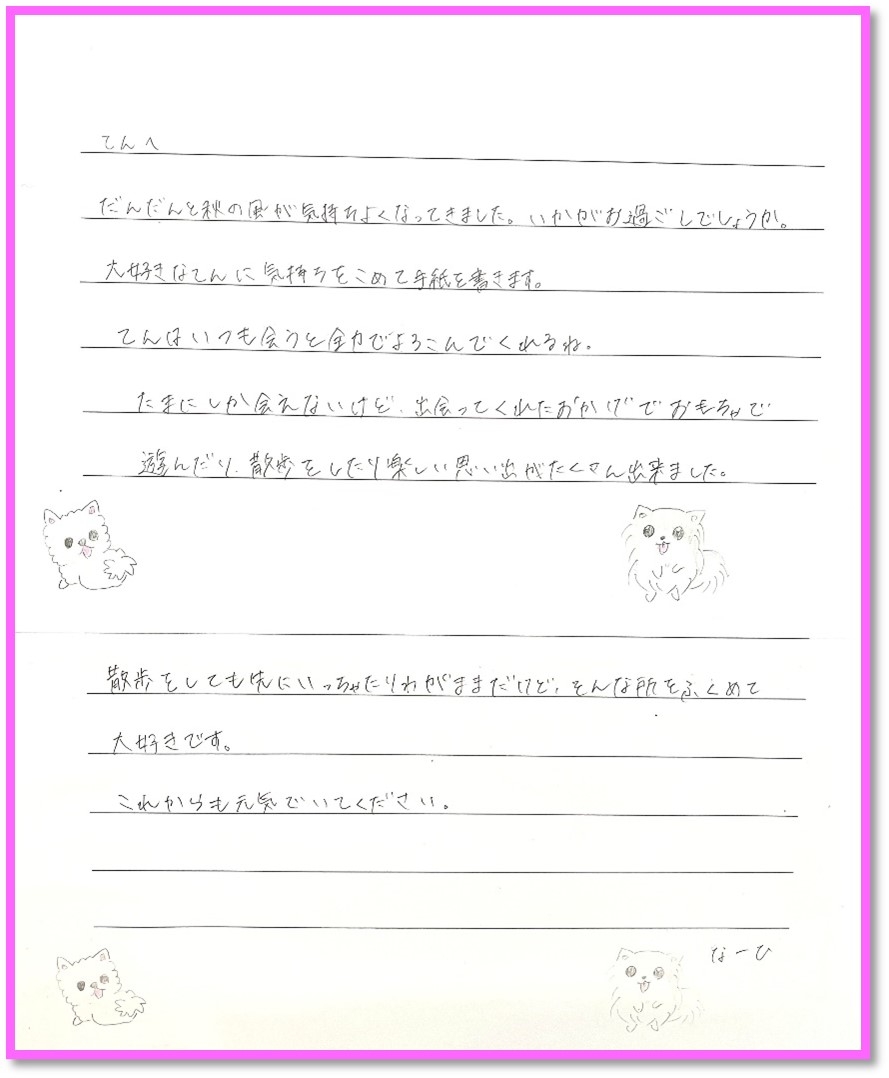 てんへ
だんだんと秋の風が気持ちよくなってきました。いかがお過ごしでしょうか。
大好きなてんに気持ちをこめて手紙を書きます。
てんはいつも会うと全力でよろこんでくれるね。
たまにしか会えないけど、出会ってくれたおかげでおもちゃで
遊んだり、散歩をしたり楽しい思い出がたくさん出来ました。
散歩をしても先にいっちゃたりわがままだけど、そんな所をふくめて
大好きです。
これからも元気でいてください。
なーひ